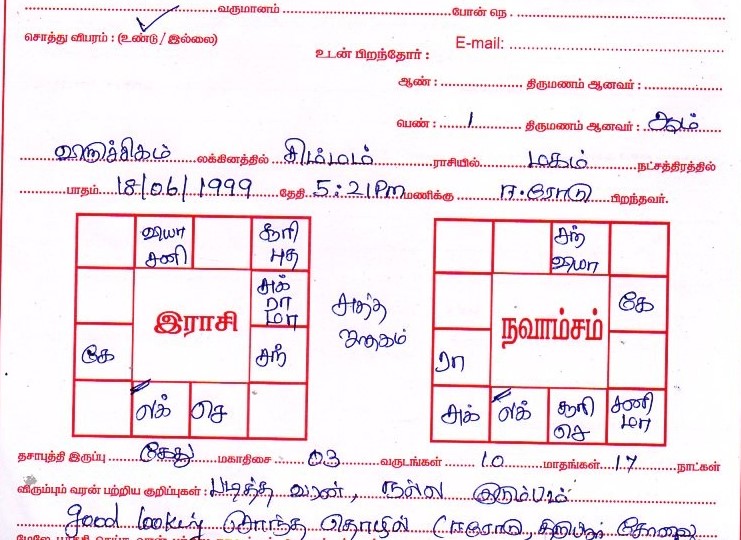 வருமானம் போன் நெ.
சொத்து விபரம் : (உண்டு / இல்லை)
உடன் பிறந்தோர் : E-mail:
ஆண் : திருமணம் ஆனவர் :
பெண் : 1 திருமணம் ஆனவர் : ஆம்
விருச்சிகம் லக்கினத்தில் சிம்மம் ராசியில் மகம் நட்சத்திரத்தில்
பாதம் 18/06/1999 தேதி 5:21 Pm மணிக்கு ஈரோடு பிறந்தவர்.
வியா சனி சூரி புத
சுக் ரா மா
இராசி
கே சந்
லக் செ
சுத்த ஜாதகம்
சந் வியா
கே
நவாம்சம்
ரா
சுக் லக் சூரி செ சனி மா
தசாபுத்தி இருப்பு கேது மகாதிசை 03 வருடங்கள் 10 மாதங்கள் 17 நாட்கள்
விரும்பும் வரன் பற்றிய குறிப்புகள் : படித்த வரன், நல்ல குடும்பம்
good looking சொந்த தொழில் (ஈரோடு, திருப்பூர் கோவை